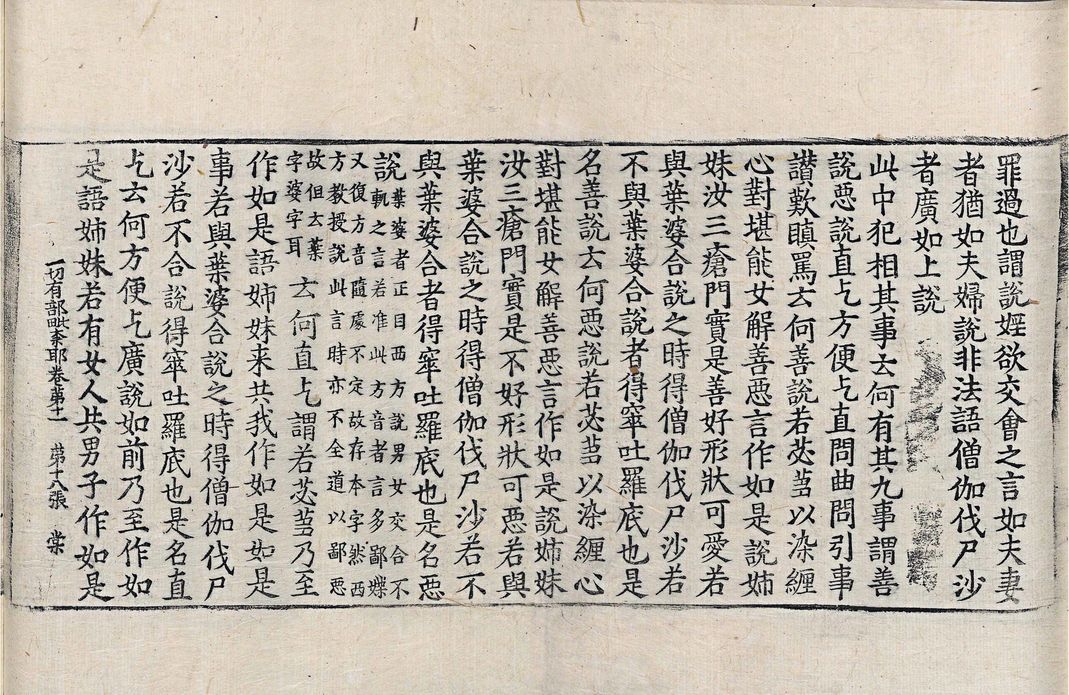 罪過也謂說婬欲交會之言如夫妻
者猶如夫婦說非法語僧伽伐尸沙
者廣如上說
此中犯相其事云何有其九事謂善
說惡說直乞方便乞直問曲問引事
讚歎瞋罵云何善說若苾芻以染纏
心對堪能女解善惡言作如是說姉
妹汝三瘡門實是善好形狀可愛若
與葉婆合說之時得僧伽伐尸沙若
不與葉婆合說者得窣吐羅底也是
名善說云何惡說若苾芻以染纏心
對堪能女解善惡言作如是說姉妹
汝三瘡門實是不好形狀可惡若與
葉婆合說之時得僧伽伐尸沙若不
與葉婆合者得窣吐羅底也是名惡
說葉婆者正目西方說男女交合不
軌之言若准此方音者言多鄙媟
又復方音隨處不定故存本字然西
方教授說此言時亦不全道以鄙惡
故但云葉
字婆字耳云何直乞謂若苾芻乃至
作如是語姉妹来共我作如是如是
事若與葉婆合說之時得僧伽伐尸
沙若不合說得窣吐羅底也是名直
乞云何方便乞廣說如前乃至作如
是語姉妹若有女人共男子作如是
一切有部毗奈耶卷第十一 第十八張 棠